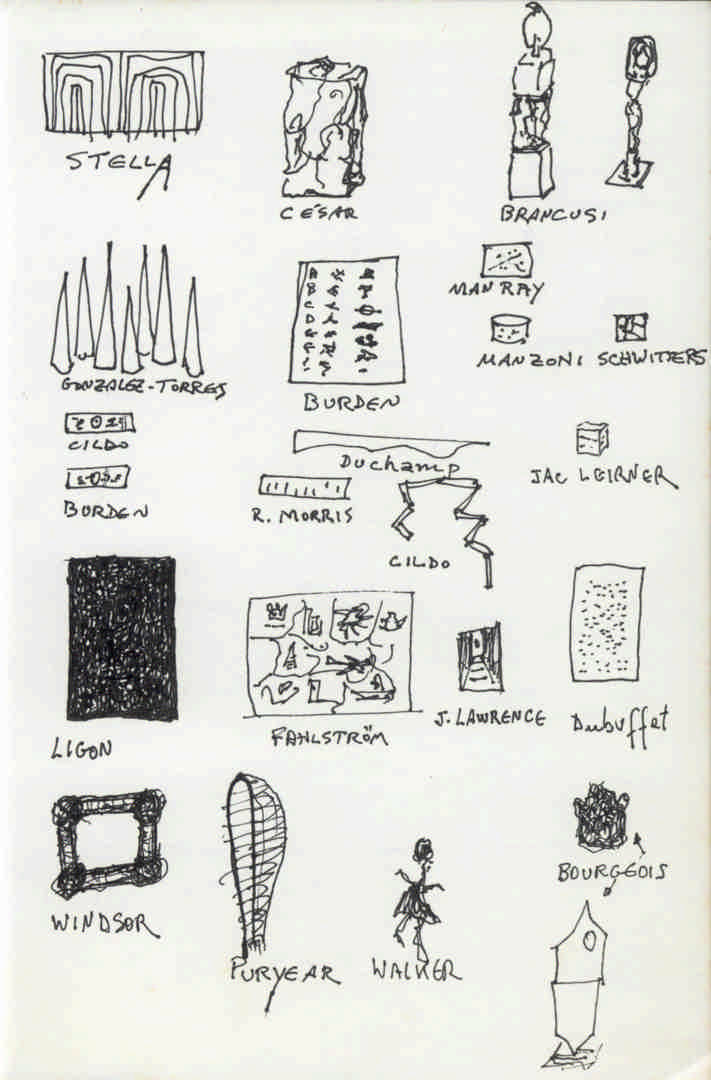 STELLA
CÉSAR
BRANCUSI
MAN RAY
MANZONI SCHWITTERS
GONZALEZ-TORRES
BURDEN
CILDO
DUChAMP
JAC LEIRNER
BURDEN
R. MORRIS
CILDO
LIGON
FAHLSTRÖM
J. LAWRENCE
Dubuffet
WINDSOR
PURYEAR
WALKER
BOURGEOIS